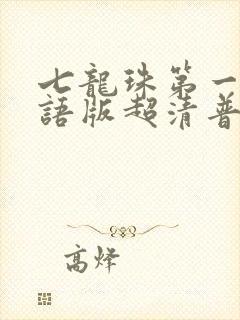 七龍珠第一
語版超清普
高烽